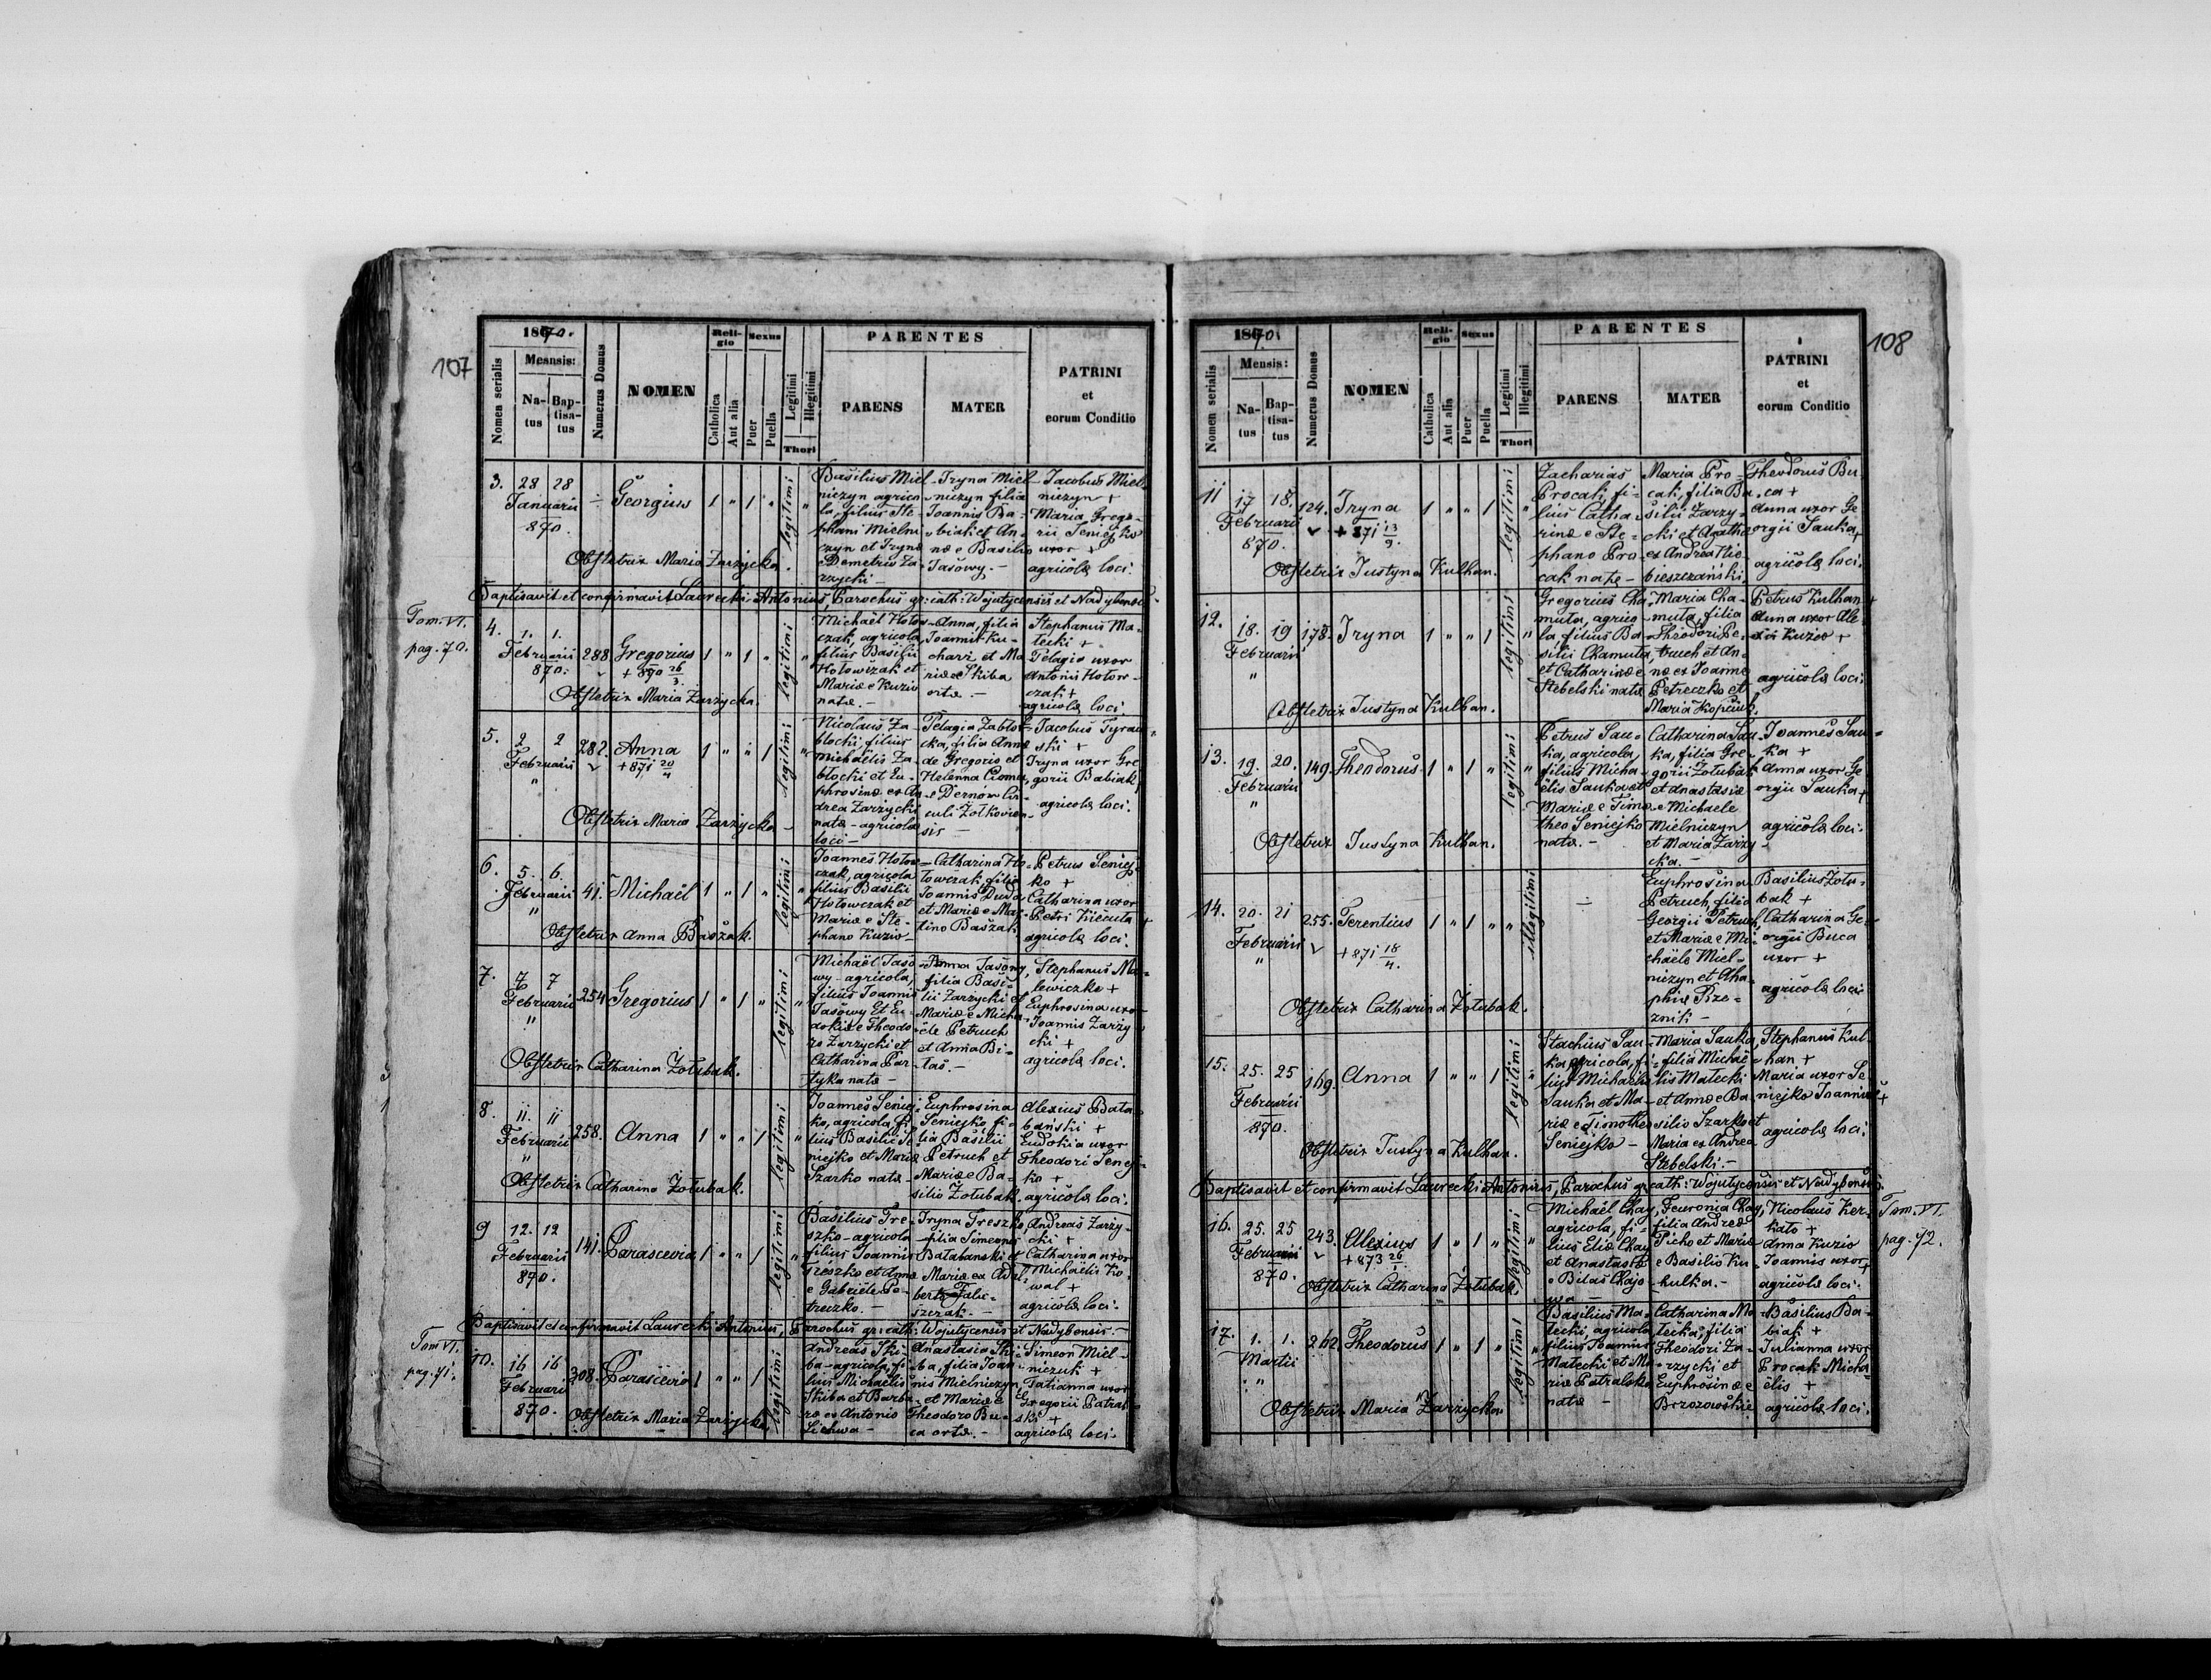 107
1870.
Nomen serialis
Meansis:
Na-
tus
Bap-
tisa-
tus
Numerus Domus
NOMEN
Reli-
gio
Catholica
Aut alia
Sexus
Puer
Puella
Legitimi
Illegitimi
Thori
PARENTES
PARENS
MATER
PATRINI
et
eorum Conditio
3. 28 28
Januarii
870.
÷ Georgius 1 " 1 " legitimi "
Basilius Miel-
niczyn agrico-
la, filius Ste-
phani Mielni-
czyn et Irynæ
e Demetrio Za-
rzycki -
Iryna Miel-
niczyn filia
Joannis Ba-
biak et An-
næ e Basilio
Jasowy. -
Jacobus Miel-
niczyn +
Maria Grego-
rii Seniejko
uxor +
agricolæ loci.
Obstetrix Maria Zarzycka.
Baptisavit et confirmavit Laurecki Antonius, Parochus gr: cath: Wojutycensis et Nadybensis.
Tom. VI.
pag. 70.
4. 1. 1.
Februarii
870.
288 Gregorius 1 " 1 " legitimi "
+ 870 26/3.
Michaël Hołow-
czak, agricola,
filius Basilii
Hołowczak et
Mariæ e Kuzio
natæ. -
Anna, filia
Joannis Ku-
chari et Ma-
riæ e Skiba
ortæ. -
Stephanus Ma-
łecki +
Pelagia uxor
Antonii Hołow-
czak +
agricolæ loci.
Obstetrix Maria Zarzycka.
5. 2 2
Februarii
"
282. Anna 1 " " 1 legitimi "
+ 871 20/4
Nicolaus Za-
błocki, filius
Michaëlis Za-
błocki et Eu-
phrosinæ ex An-
drea Zarzycki
natæ - agricolæ
loci -
Pelagia Zabłoc-
ka, filia Annæ
de Gregorio et
Helenna
e Dernów Cir-
culi Żołkovien-
sis -
Jacobus Tyraw-
ski +
Iryna uxor Gre-
gorii Babiak,
agricolæ loci.
Obstetrix Maria Zarzycka -
6. 5. 6.
Februarii
"
41. Michaël 1 " 1 " legitimi "
Joannes Hołow-
czak, agricola
filius Basilii
Hołowczak et
Mariæ e Ste-
phano Kuzio -
Catharina Ho-
łowczak, filia
Joannis Duda
et Mariæ e Mar-
tino Baszak
Petrus Seniej-
ko +
Catharina uxor
Petri Kiecuta +
agricolæ loci.
Obstetrix Anna Baszak.
7. 7 7
Februarii
"
254 Gregorius 1 " 1 " legitimi "
Michaël Jaso-
wy - agricola,
filius Joannis
Jasowy Et Eu-
dokiæ e Theodo-
ro Zarzycki et
Catharina Par-
tyka natæ -
Anna Jasowy,
filia Basi-
lii Zarzycki et
Mariæ e Micha-
ele Petruch
et Anna Bi-
łas. -
Stephanus Ma-
lewiczko +
Euphrosina uxor
Joannis Zarzy-
cki +
agricolæ loci.
Obstetrix Catharina Żołubak.
8. 11. 11
Februarii
"
258. Anna 1 " " 1 legitimi "
Joannes Seniej-
ko, agricola, fi-
lius Basilii Se-
niejko et Mariæ
Szarko natæ -
Euphrosina
Seniejko fi-
lia Basilii
Petruch et
Mariæ e Ba-
silio Żołubak.
Alexius Bata-
banski +
Eudokia uxor
Theodori Seniej-
ko +
agricolæ loci.
Obstetrix Catharina Żołubak.
9 12. 12
Februarii
870.
141. Parascevia 1 " " 1 legitimi "
Basilius Tre-
szko - agricola
filius Joannis
Treszko et Annæ
e Gabriele Pe-
treczko. -
Iryna Treszko,
filia Simeonis
Batabanski et
Mariæ ex Adal-
berto
szczak. -
Andreas Zarzy-
cki +
Catharina uxor
Michaëlis Ko-
wal +
agricolæ loci.
Baptisavit et confirmavit Laurecki Antonius, Parochus gr: cath: Wojutycensis et Nadybensis. -
Tom VI.
pag. 71.
10. 16 16
Februarii
870.
308. Parascevia 1 " " 1 legitimi
Andreas Ski-
ba - agricola, fi-
lius Michaëlis
Skiba et Barba-
ræ ex Antonio
Lichwa -
Anastasia Ski-
ba, filia Joan-
nis Mielniczyn
et Mariæ e
Theodoro Bu-
ca ortæ. -
Simeon Miel-
niczuk +
Tatianna uxor
Gregorii Patral-
ski +
agricolæ loci.
Obstetrix Maria Zarzycka.
108
1870.
Nomen serialis
Mensis:
Na-
tus
Bap-
tisa-
tus
Numerus Domus
NOMEN
Reli-
gio
Catholica
Aut alia
Sexus
Puer
Puella
Legitimi
Illegitimi
Thori
PARENTES
PARENS
MATER
PATRINI
et
eorum Conditio
11 17 18.
Februarii
870.
124. Iryna 1 " " 1 legitimi "
+ 871 13/9.
Zacharias
Procak, fi-
lius Catha-
rinæ e Ste-
phano Pro-
cak natæ -
Maria Pro-
cak, filia Ba-
silii Zarzy-
cki et Agatha
ex Andrea Nie-
bieszczański.
Theodorus Bu-
ca +
Anna uxor Ge-
orgii Sauka +
agricolæ loci.
Obstetrix Justyna Kulhan.
12. 18. 19
Februarii
"
178. Iryna 1 " " 1 legitimi "
Gregorius Cha-
muta, agrico-
la, filius Ba-
silii Chamuta,
et Catharinæ
Stebelski natæ
Maria Cha-
muta, filia
Theodori Pe-
truch et An-
næ ex Joanne
Petreczko et
Maria Kopciuch.
Petrus Kulhan +
Anna uxor Ale-
xii Kuzio +
agricolæ loci.
Obstetrix Justyna Kulhan.
13. 19. 20.
Februarii
"
149. Theodorus 1 " 1 " legitimi "
Petrus Sau-
ka, agricola,
filius Micha-
ëlis Sauka et
Mariæ e Timo-
theo Seniejko
natæ. -
Catharina Sau-
ka, filia Gre-
gorii Żołubak
et Anastasiæ
e Michaele
Mielniczyn
et Maria Zarzy-
cka. -
Joannes Sau-
ka +
Anna uxor Ge-
orgii Sauka +
agricolæ loci.
Obstetrix Justyna Kulhan.
14. 20. 21
Februarii
"
255. Terentius 1 " 1 " " illegitimi
+ 871 18/4.
÷
Euphrosina
Petruch, filia
Georgii Petruch,
et Mariæ e Mi-
chaele Miel-
niczyn et Aha-
phiæ Rze-
znik -
Basilius Żołu-
bak +
Catharina Ge-
orgii Buca
uxor +
agricolæ loci
Obstetrix Catharina Żołubak.
15. 25. 25
Februarii
870.
169. Anna 1 " " 1 legitimi "
Stachius Sau-
ka agricola, fi-
lius Michaelis
Sauka et Ma-
riæ e Timotheo
Seniejko -
Maria Sauka,
filia Michaë-
lis Małecki
et Annæ e Ba-
silio Szarko et
Maria ex Andrea
Stebelski. -
Stephanus Kul-
han +
Maria uxor Se-
niejko Joannis +
agricolæ loci.
Obstetrix Justyna Kulhan.
Baptisavit et confirmavit Laurecki Antonius, Parochus gr cath: Wojutycensis et Nadybensis.
Tom. VI.
pag. 72.
16. 25. 25
Februarii
870.
243. Alexius 1 " 1 " legitimi "
+ 873 26/1.
Michaël Chay,
agricola, fi-
lius Eliæ Chay
et Anastasiæ
e Biłas Chajo-
wa -
Feuronia Chay,
filia Andreæ
Picho et Mariæ
e Basilio Ku-
hulka. -
Nicolaus Ker-
kato +
Anna Kuzio
Joannis uxor +
agricolæ loci.
Obstetrix Catharina Żołubak.
17. 1. 1.
Martii
"
262. Theodorus 1 " 1 " legitimi "
Basilius Ma-
łecki, agricola
filius Joannis
Małecki et Ma-
riæ Patralska
natæ -
Catharina Ma-
łecka, filia
Theodori Za-
rzycki et
Euphrosinæ e
Brzozowskie
Basilius Ba-
biak +
Julianna uxor
Procak Micha-
ëlis +
agricolæ loci.
Obstetrix Maria Zarzycka.